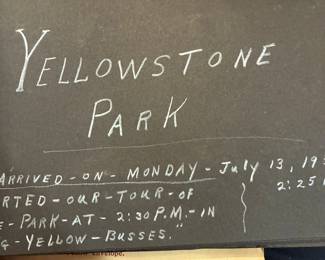 YELLOWSTONE
PARK
ARRIVED-ON-MONDAY-July 13, 19
2:25
RTED-OUR-TOUR-OF
E-PARK-AT-2:30 P.M.-IN
G-YELLOW-BUSSES."
envelope.